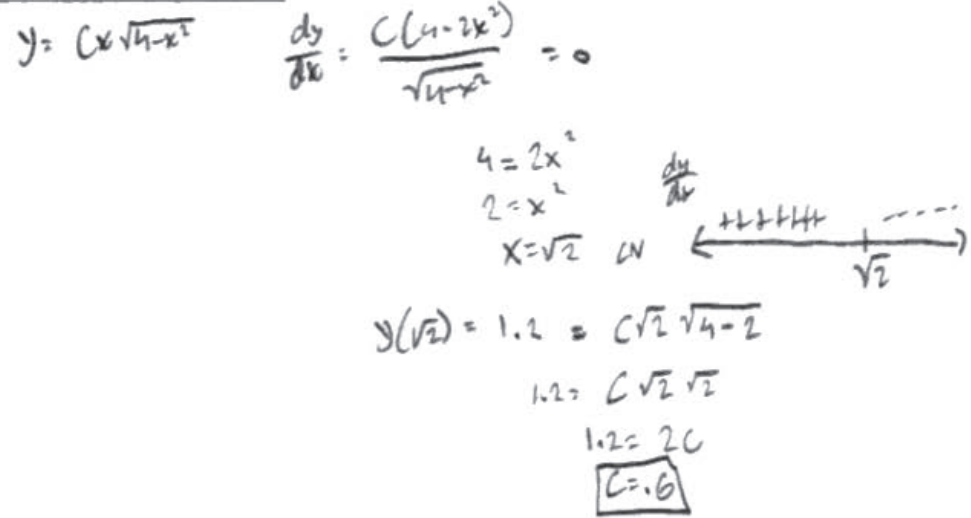 y = Cx√(4-x²) dy/dx = C(4-2x²)/√(4-x²) = 0
4 = 2x²
2 = x²
x = √2 CN
dy/dx +++++++ -----
√2
y(√2) = 1.2 = C√2 √(4-2)
1.2 = C√2 √2
1.2 = 2C
C = .6